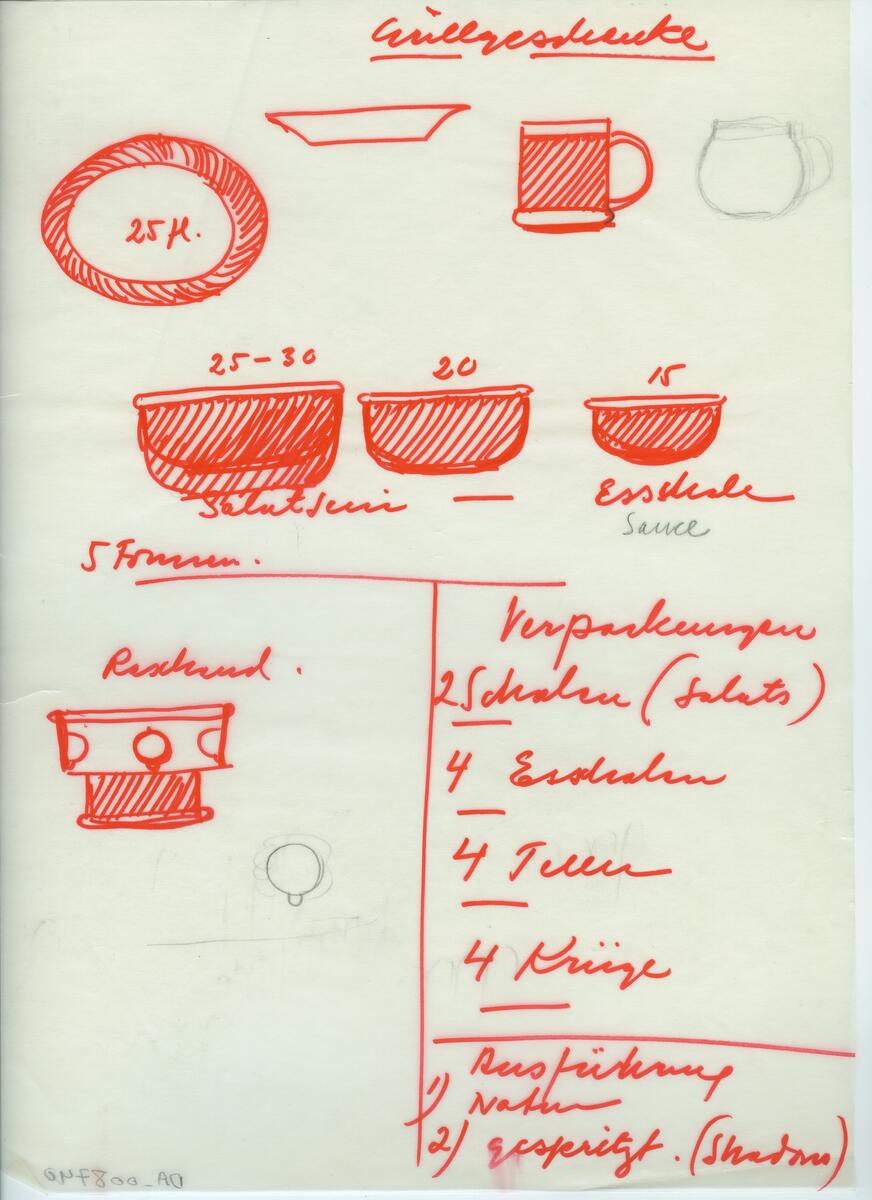 Grillgeschenke
25 fl.
25-30
20
15
Salatserv
Essschale
Sauce
5 Formen.
Verpackungen
Rechaud.
2 Schalen (Salats)
4 Esschalen
4 Teller
4 Krüge
Ausführung
1) Natur
2) gespritzt. (Shadow)